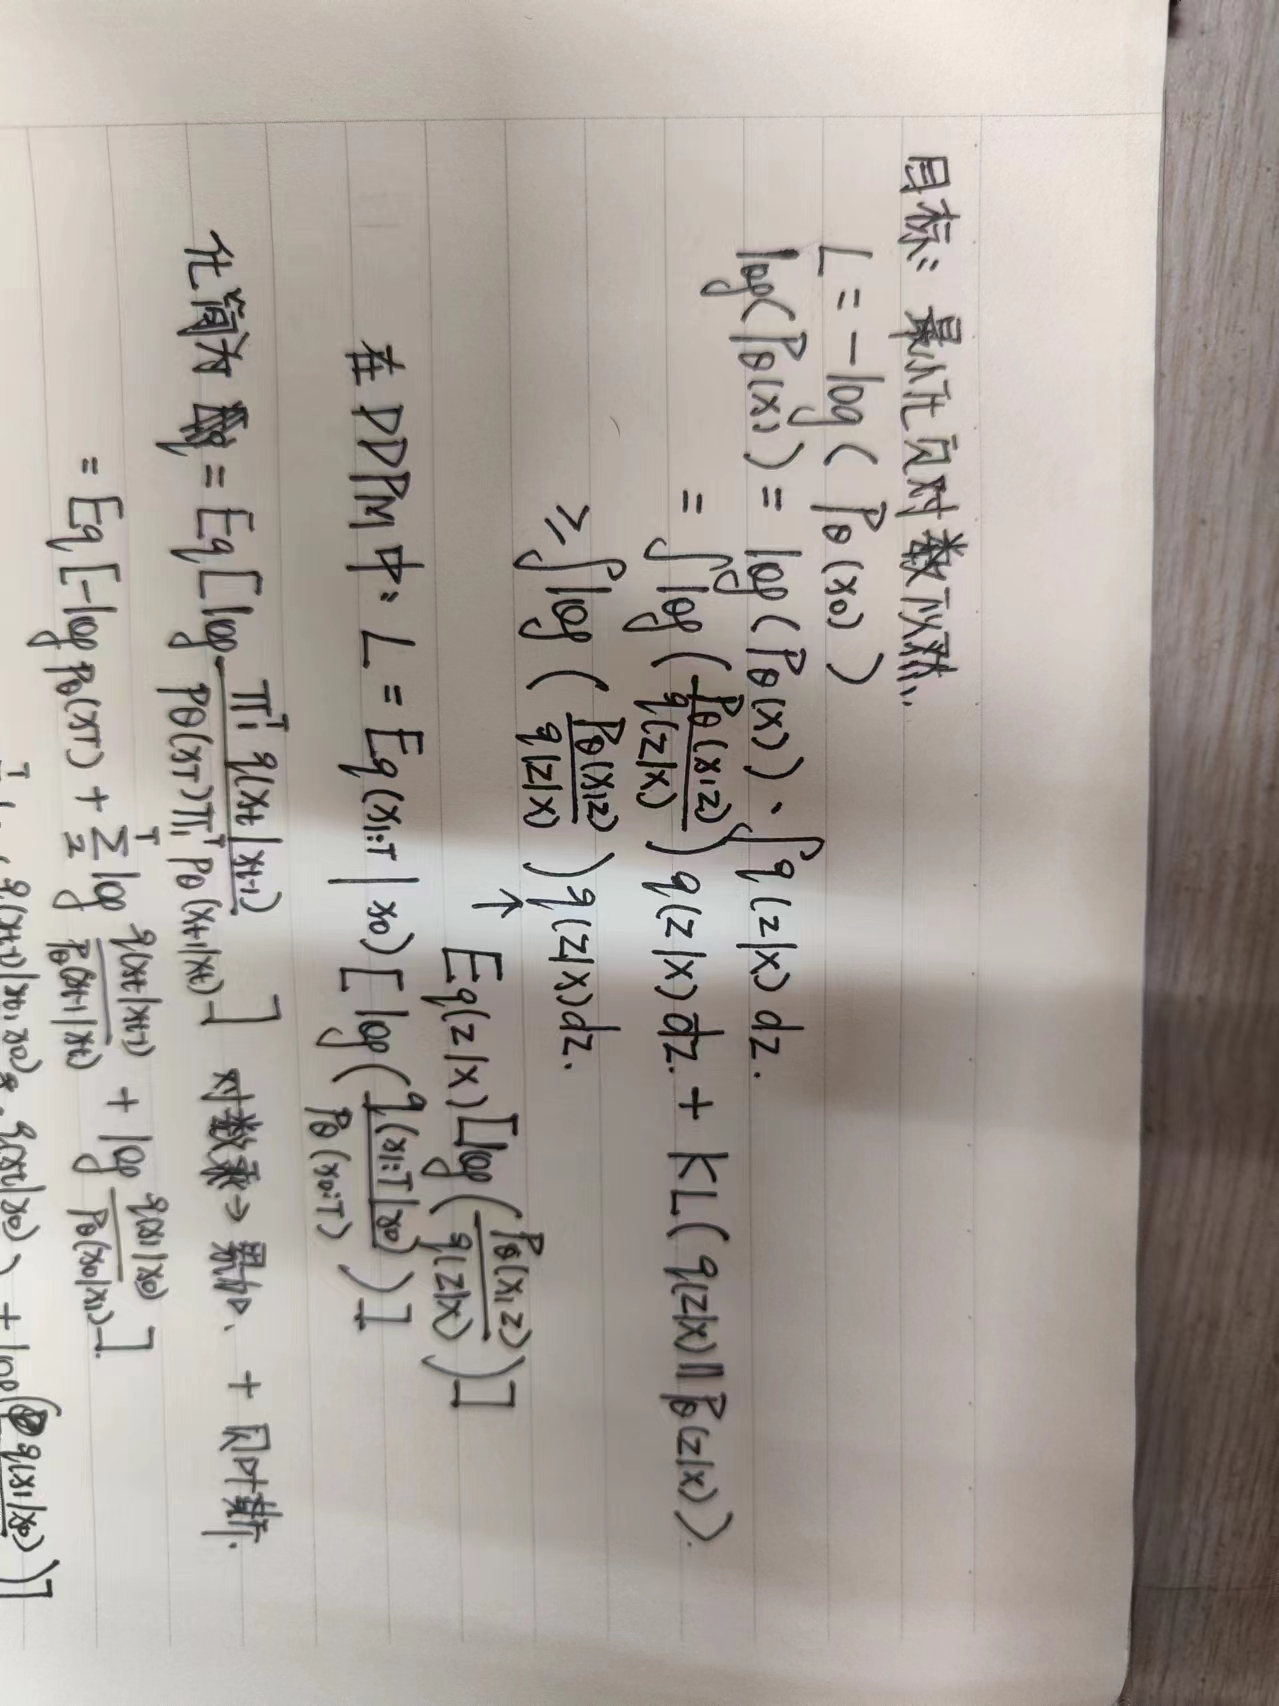 目标：最小化负对数似然.
L = -log( Pθ(x0) )
log(Pθ(x)) = log(Pθ(x)) · ∫ q(z|x) dz.
= ∫ log( Pθ(x,z) / q(z|x) ) q(z|x) dz. + KL( q(z|x) || Pθ(z|x) ).
≥ ∫ log( Pθ(x,z) / q(z|x) ) q(z|x) dz.
↑ Eq(z|x) [ log( Pθ(x,z) / q(z|x) ) ]
在 DDPM 中: L = Eq(x1:T | x0) [ log( q(x1:T|x0) / Pθ(x0:T) ) ]
化简为 = Eq [ log Π₁ᵀ q(xt|xt-1) / Pθ(xT) Π₁ᵀ Pθ(xt-1|xt) ] 对数乘→累加、+ 贝叶斯.
= Eq [ -log Pθ(xT) + Σ₂ᵀ log q(xt|xt-1) / Pθ(xt-1|xt) + log q(x1|x0) / Pθ(x0|x1) ].
T q(xt-1|xt,x0) q(xt|x0) ) + log( q(x1|x0) ) ]